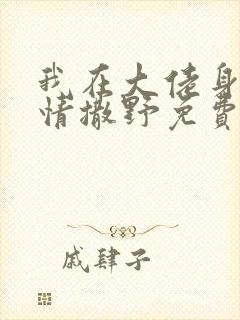 我在大佬身
情撒野免费
戚肆子